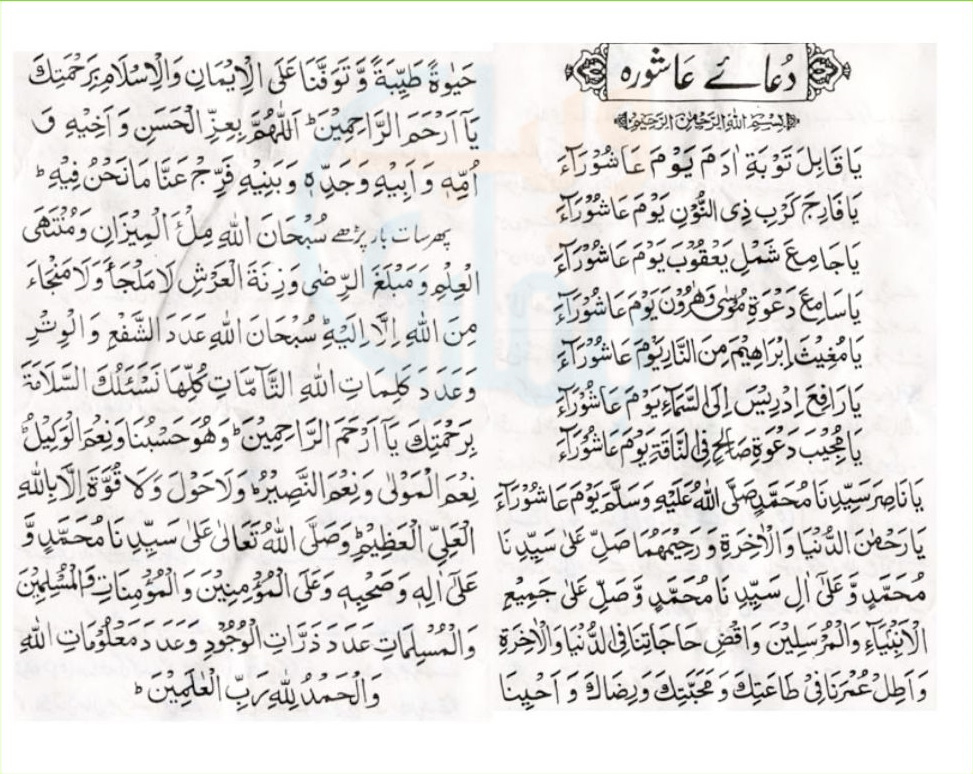 دُعائے عَاشورہ
بِسْمِ اللّٰهِ الرَّحْمٰنِ الرَّحِيْمِ
يَا قَابِلَ تَوْبَةِ اٰدَمَ يَوْمَ عَاشُوْرَآءَ
يَا فَارِجَ كَرْبِ ذِى النُّوْنِ يَوْمَ عَاشُوْرَآءَ
يَا جَامِعَ شَمْلِ يَعْقُوْبَ يَوْمَ عَاشُوْرَآءَ
يَا سَامِعَ دَعْوَةِ مُوْسٰى وَهٰرُوْنَ يَوْمَ عَاشُوْرَآءَ
يَا مُغِيْثَ اِبْرَاهِيْمَ مِنَ النَّارِ يَوْمَ عَاشُوْرَآءَ
يَا رَافِعَ اِدْرِيْسَ اِلَى السَّمَآءِ يَوْمَ عَاشُوْرَآءَ
يَا مُجِيْبَ دَعْوَةِ صَالِحٍ فِى النَّاقَةِ يَوْمَ عَاشُوْرَآءَ
يَا نَاصِرَ سَيِّدِنَا مُحَمَّدٍ صَلَّى اللّٰهُ عَلَيْهِ وَسَلَّمَ يَوْمَ عَاشُوْرَآءَ
يَا رَحْمٰنَ الدُّنْيَا وَ الْاٰخِرَةِ وَ رَحِيْمَهُمَا صَلِّ عَلٰى سَيِّدِنَا
مُحَمَّدٍ وَّ عَلٰى اٰلِ سَيِّدِنَا مُحَمَّدٍ وَّ صَلِّ عَلٰى جَمِيْعِ
الْاَنْبِيَآءِ وَالْمُرْسَلِيْنَ وَاقْضِ حَاجَاتِنَا فِى الدُّنْيَا وَ الْاٰخِرَةِ
وَ اَطِلْ عُمْرَنَا فِىْ طَاعَتِكَ وَ مَحَبَّتِكَ وَ رِضَاكَ وَ اَحْيِنَا
حَيٰوةً طَيِّبَةً وَّ تَوَفَّنَا عَلَى الْاِيْمَانِ وَالْاِسْلَامِ بِرَحْمَتِكَ
يَآ اَرْحَمَ الرَّاحِمِيْنَ ؕ اَللّٰهُمَّ بِعِزِّ الْحَسَنِ وَ اَخِيْهِ وَ
اُمِّهٖ وَ اَبِيْهِ وَ جَدِّهٖ وَ بَنِيْهِ فَرِّجْ عَنَّا مَا نَحْنُ فِيْهِ ؕ
پھر سات بار پڑھے سُبْحَانَ اللّٰهِ مِلْءَ الْمِيْزَانِ وَ مُنْتَهَى
الْعِلْمِ وَ مَبْلَغَ الرِّضٰى وَ زِنَةَ الْعَرْشِ لَا مَلْجَأَ وَ لَا مَنْجَاءَ
مِنَ اللّٰهِ اِلَّا اِلَيْهِ ؕ سُبْحَانَ اللّٰهِ عَدَدَ الشَّفْعِ وَ الْوِتْرِ
وَ عَدَدَ كَلِمَاتِ اللّٰهِ التَّآمَّاتِ كُلِّهَا نَسْئَلُكَ السَّلَامَةَ
بِرَحْمَتِكَ يَآ اَرْحَمَ الرَّاحِمِيْنَ ؕ وَهُوَ حَسْبُنَا وَ نِعْمَ الْوَكِيْلُ ؕ
نِعْمَ الْمَوْلٰى وَ نِعْمَ النَّصِيْرُ ؕ وَ لَا حَوْلَ وَ لَا قُوَّةَ اِلَّا بِاللّٰهِ
الْعَلِيِّ الْعَظِيْمِ ؕ وَ صَلَّى اللّٰهُ تَعَالٰى عَلٰى سَيِّدِنَا مُحَمَّدٍ وَّ
عَلٰى اٰلِهٖ وَ صَحْبِهٖ وَ عَلَى الْمُؤْمِنِيْنَ وَ الْمُؤْمِنَاتِ وَ الْمُسْلِمِيْنَ
وَ الْمُسْلِمَاتِ عَدَدَ ذَرَّاتِ الْوُجُوْدِ وَ عَدَدَ مَعْلُوْمَاتِ اللّٰهِ
وَ الْحَمْدُ لِلّٰهِ رَبِّ الْعٰلَمِيْنَ ؕ